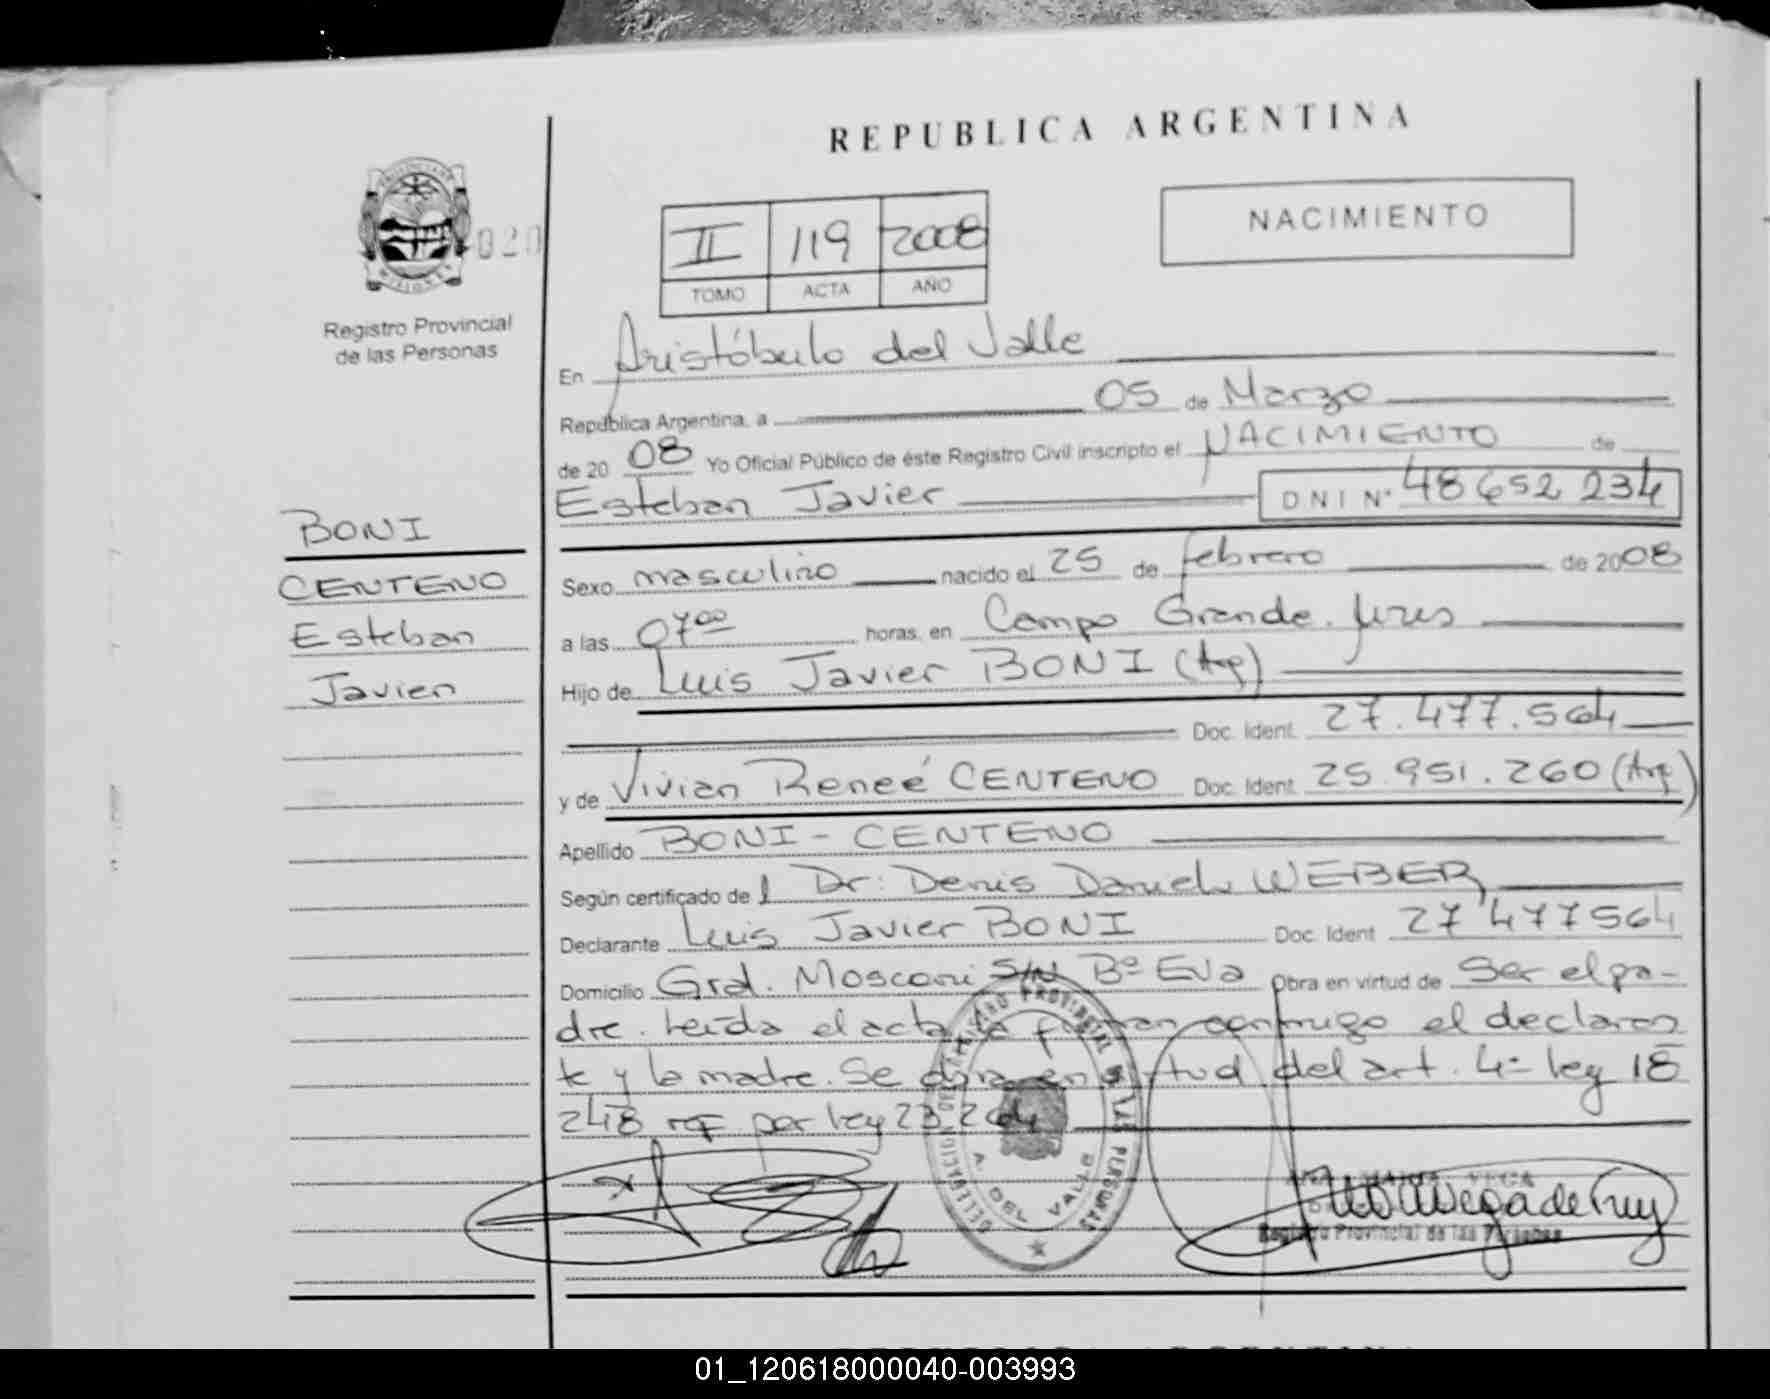 REPUBLICA ARGENTINA
NACIMIENTO
II 119 2008
TOMO ACTA AÑO
020
Registro Provincial
de las Personas
En Aristóbulo del Valle
República Argentina, a 05 de Marzo
de 20 08 Yo Oficial Público de éste Registro Civil inscripto el NACIMIENTO de
Esteban Javier DNI Nº 48 652 234
BONI
CENTENO
Esteban
Javier
Sexo masculino nacido el 25 de febrero de 2008
a las 07 00 horas, en Campo Grande.
Hijo de Luis Javier BONI (Arg)
Doc. Ident. 27.477.564
y de Vivian Reneé CENTENO Doc. Ident. 25.951.260 (Arg)
Apellido BONI - CENTENO
Según certificado de l Dr: Denis Daniel WEBER
Declarante Luis Javier BONI Doc. Ident 27 477 564
Domicilio Gral. Mosconi S/N Bº Eva Obra en virtud de Ser el pa-
dre. Leída el acta la firman conmigo el declaran
te y la madre. Se obra en virtud del art. 4º ley 18
248 por ley 23.264
DELEGACION DEL REGISTRO PROVINCIAL DE LAS PERSONAS
A. DEL VALLE
VEGA
Registro Provincial de las Personas
01_120618000040-003993